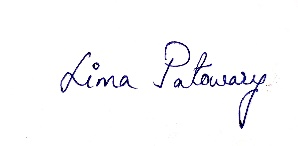 Lima Patowary